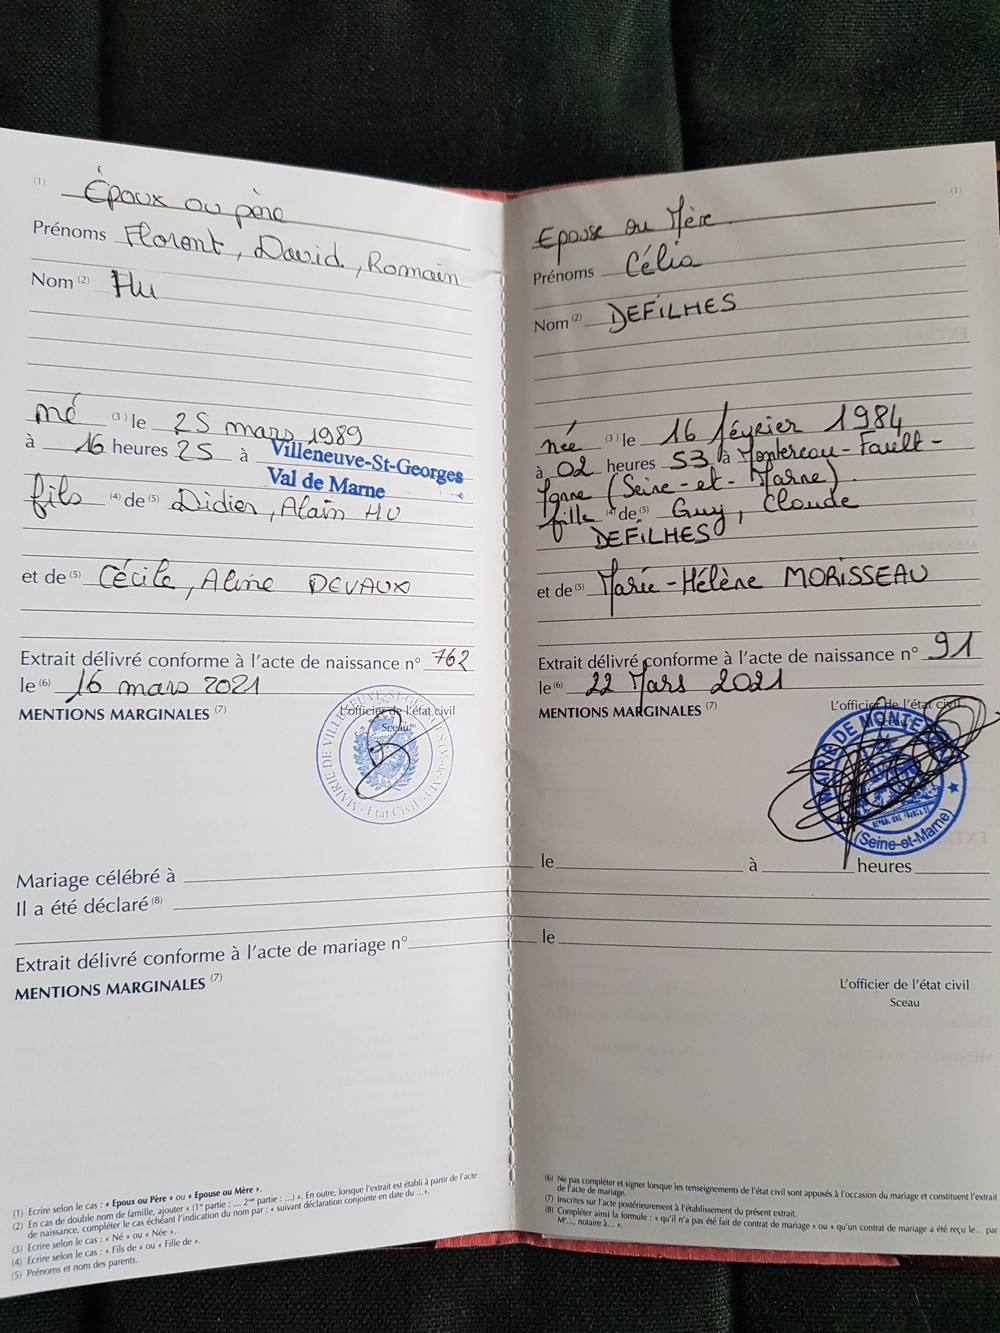 (1)
Époux ou père
Prénoms Florent, David, Romain
Nom (2) HU
né (3) le 25 mars 1989
à 16 heures 25 à Villeneuve-St-Georges
Val de Marne
fils (4) de (5) Didier, Alain HU
et de (5) Cécile, Aline DEVAUX
Extrait délivré conforme à l'acte de naissance n° 762
le (6) 16 mars 2021
MENTIONS MARGINALES (7)
L'officier de l'état civil
Sceau
MAIRIE DE VILLENEUVE-ST-GEORGES
Etat Civil
Mariage célébré à
Il a été déclaré (8)
Extrait délivré conforme à l'acte de mariage n°
MENTIONS MARGINALES (7)
(1) Ecrire selon le cas : « Epoux ou Père » ou « Epouse ou Mère ».
(2) En cas de double nom de famille, ajouter « (1re partie : ... 2nde partie : ...) ». En outre, lorsque l'extrait est établi à partir de l'acte
de naissance, compléter le cas échéant l'indication du nom par : « suivant déclaration conjointe en date du ... ».
(3) Ecrire selon le cas : « Né » ou « Née ».
(4) Ecrire selon le cas : « Fils de » ou « Fille de ».
(5) Prénoms et nom des parents.
(1)
Epouse ou Mère
Prénoms Célia
Nom (2) DEFILHES
née (3) le 16 février 1984
à 02 heures 53 à Montereau-Fault-
Yonne (Seine-et-Marne).
fille (4) de (5) Guy, Claude
DEFILHES
et de (5) Marie-Hélène MORISSEAU
Extrait délivré conforme à l'acte de naissance n° 91
le (6) 22 Mars 2021
MENTIONS MARGINALES (7)
L'officier de l'état civil
Sceau
MAIRIE DE
(Seine-et-Marne)
le à heures
le
L'officier de l'état civil
Sceau
(6) Ne pas compléter et signer lorsque les renseignements de l'état civil sont apposés à l'occasion du mariage et constituent l'extrait
de l'acte de mariage.
(7) Inscrites sur l'acte postérieurement à l'établissement du présent extrait.
(8) Compléter ainsi la formule : « qu'il n'a pas été fait de contrat de mariage » ou « qu'un contrat de mariage a été reçu le... par
Me..., notaire à... ».